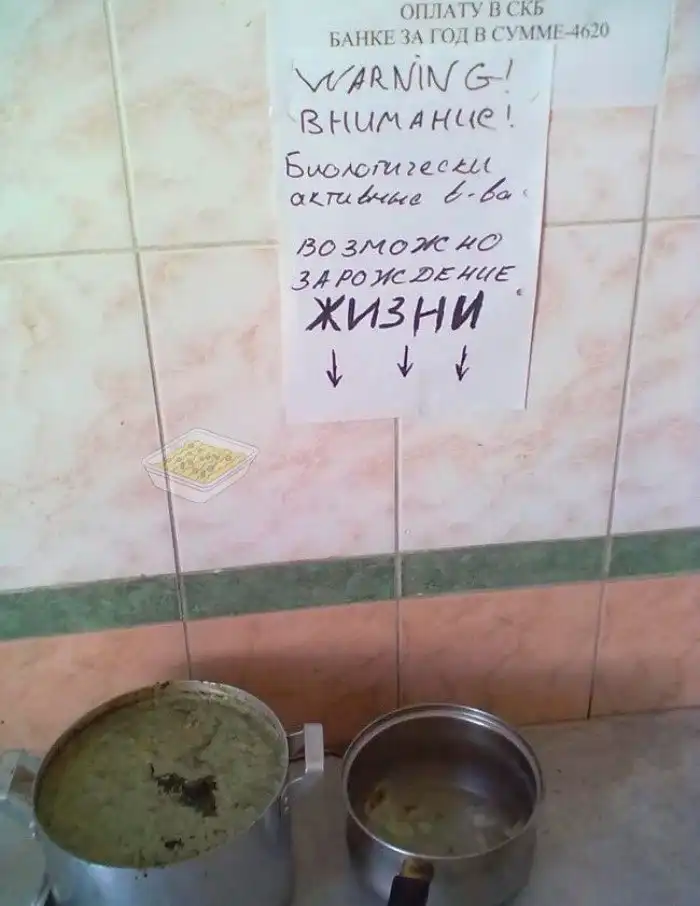 ОПЛАТУ В СКБ
БАНКЕ ЗА ГОД В СУММЕ-4620
WARNING!
ВНИМАНИЕ!
Биологически
активные в-ва.
ВОЗМОЖНО
ЗАРОЖДЕНИЕ
ЖИЗНИ